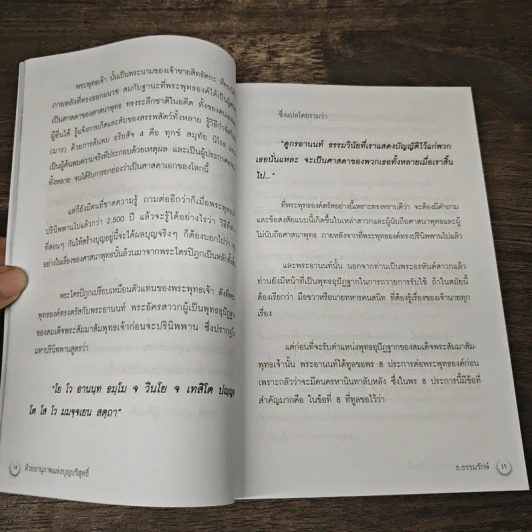 พระพุทธเจ้า นั้นเป็นพระนามของเจ้าชายสิทธัตถะ ที่
ภายหลังที่ทรงออกผนวช สมกับฐานะที่พระพุทธองค์ได้เป็นผู้
เป็นศาสดาของศาสนาพุทธ ทรงระลึกชาติในอดีต ทั้งของตนเอง
ผู้อื่นได้ รู้แจ้งการเกิดและดับของสรรพสัตว์ทั้งหลาย รู้วิธีกำจัด
(มาร) ด้วยการค้นพบ อริยสัจ 4 คือ ทุกข์ สมุทัย นิโรธ
เป็นผู้ค้นพบความจริงที่ประกอบด้วยเหตุผล และเป็นผู้ประกาศ
ทั้งหลาย จนได้รับการยกย่องว่าเป็นศาสดาเอกของโลกนี้
แต่ก็ยังมีคนที่ขาดความรู้ ถามต่ออีกว่าก็เมื่อพระพุทธ
ปรินิพพานไปแล้วกว่า 2,500 ปี แล้วจะรู้ได้อย่างไรว่า วิธี
ที่สอนๆ กันให้สร้างบุญอยู่นี้จะได้ผลบุญจริงๆ ก็ต้องบอกไปว่า
อย่างในเรื่องของศาสนานั้นล้วนมาจากพระไตรปิฎกเป็นหลัก
พระไตรปิฎกเปรียบเหมือนตัวแทนของพระพุทธเจ้า ดังที่
พุทธองค์ทรงตรัสกับพระอานนท์ พระอัครสาวกผู้เป็นพุทธอุปัฏฐาก
ของสมเด็จพระสัมมาสัมพุทธเจ้าก่อนจะปรินิพพาน ซึ่งปรากฏ
มหาปรินิพพานสูตรว่า
"โย โว อานนฺท ธมฺโม จ วินโย จ เทสิโต ปญฺญ
โต โส โว มมจฺจเยน สตฺถา"
14
ด้วยอานุภาพแห่งบุญบริสุทธิ์
ซึ่งแปลโดยรวมว่า
"ดูกรอานนท์ ธรรมวินัยที่เราแสดงบัญญัติไว้แก่พวก
เธอนั่นแหละ จะเป็นศาสดาของพวกเธอทั้งหลายเมื่อเราสิ้น
ไป..."
ที่พระพุทธองค์ตรัสอย่างนี้เพราะทรงทราบดีว่า จะต้องมีคำถาม
และข้อสงสัยแบบนี้เกิดขึ้นในเหล่าสาวกและผู้นับถือศาสนาพุทธ และผู้
ไม่นับถือศาสนาพุทธ ภายหลังจากที่พระพุทธองค์ทรงปรินิพพานไปแล้ว
และพระอานนท์นั้น นอกจากท่านเป็นพระอรหันต์สาวกแล้ว
ท่านยังมีหน้าที่เป็นพุทธอุปัฏฐากในการถวายการรับใช้ ถ้าในสมัยนี้
ต้องเรียกว่า มือขวาหรือนายทหารคนสนิท ที่ต้องรู้เรื่องของเจ้านายทุก
เรื่อง
แต่ก่อนที่จะรับตำแหน่งพุทธอุปัฏฐากของสมเด็จพระสัมมาสัม-
พุทธเจ้านั้น พระอานนท์ได้ทูลขอพร 8 ประการต่อพระพุทธองค์ก่อน
เพราะกลัวว่าจะมีคนครหานินทาลับหลัง ซึ่งในพร 8 ประการนี้มีข้อที่
สำคัญมากคือ ในข้อที่ 8 ที่ทูลขอไว้ว่า
ธ.ธรรมรักษ์
15